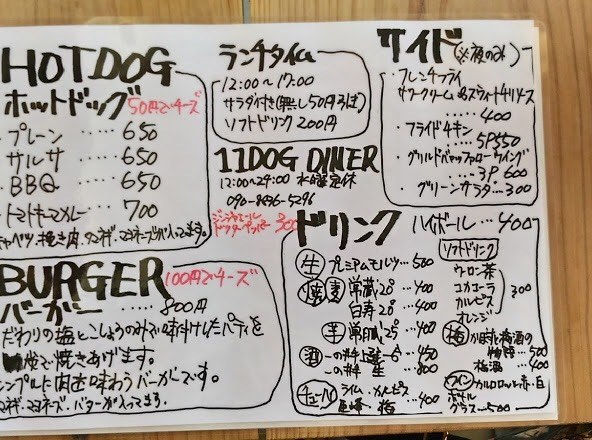 HOTDOG
ホットドッグ 50円でチーズ
・プレーン ‥‥ 650
・サルサ ‥‥ 650
・BBQ ‥‥ 650
トマトキーマカレー ‥‥ 700
BURGER 100円でチーズ
バーガー ‥‥‥ 800円
だわりの塩とこしょうのみで味付けしたパティを
で焼きあげます。
シンプルに肉を味わうバーガーです。
マヨネーズ・バターが入ってます。
ランチタイム
12:00～17:00
サラダ付き(無し50円引き)
ソフトドリンク 200円
11DOG DINER
12:00～24:00 水曜定休
090-8696-5296
ジンジャエール
ドクターペッパー 300
サイド(※夜のみ)
・フレンチフライ
サワークリーム&スウィートチリソース
‥‥ 400
・フライドチキン
5P550
・グリルドバッファローウイング
3P 600
・グリーンサラダ ‥‥ 300
ドリンク
ハイボール ‥‥ 400
生 プレミアムモルツ ‥‥ 500
焼 麦 常蔵20° ‥‥ 400
白寿20° ‥‥ 400
芋 常胍25° ‥‥ 400
酒 一の井上選 ‥‥ 450
一の井 生 ‥‥ 800
チューハイ ライム・カルピス
巨峰・梅 ‥‥ 400
ソフトドリンク
ウーロン茶
コカコーラ
カルピス
オレンジ
300
梅 かぼす梅酒の
物語 ‥‥ 500
梅酒 ‥‥ 400
ワイン カルロロッシ 赤・白
ボトル
グラス ‥‥ 500